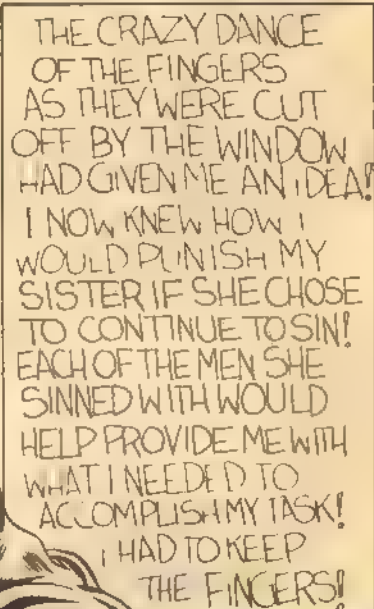 THE CRAZY DANCE
OF THE FINGERS
AS THEY WERE CUT
OFF BY THE WINDOW
HAD GIVEN ME AN IDEA!
I NOW KNEW HOW I
WOULD PUNISH MY
SISTER IF SHE CHOSE
TO CONTINUE TO SIN!
EACH OF THE MEN SHE
SINNED WITH WOULD
HELP PROVIDE ME WITH
WHAT I NEEDED TO
ACCOMPLISH MY TASK!
I HAD TO KEEP
THE FINGERS!